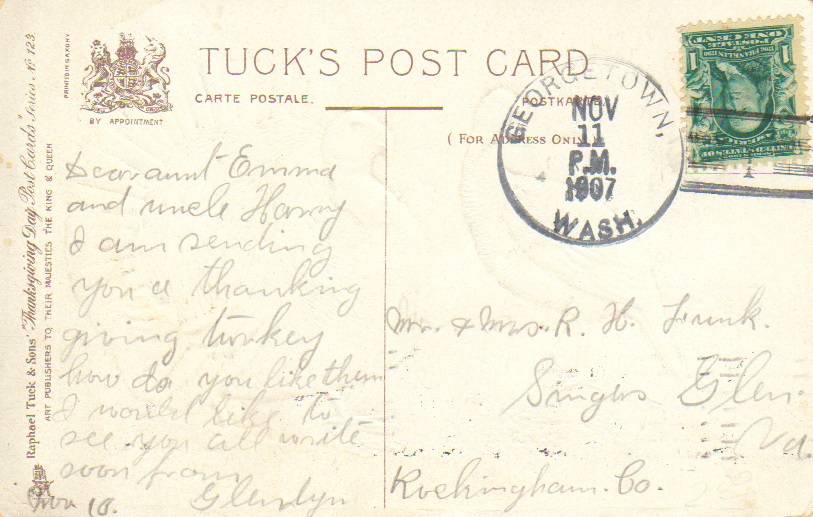 TUCK'S POST CARD
CARTE POSTALE.
POSTKARTE.
(FOR ADDRESS ONLY)
BY APPOINTMENT
PRINTED IN SAXONY.
Raphael Tuck & Sons' "Thanksgiving Day Post Cards" Series. No 123.
ART PUBLISHERS TO THEIR MAJESTIES THE KING & QUEEN
GEORGETOWN,
NOV
11
P.M.
1907
WASH.
1 POSTAGE 1
ONE CENT
Dear aunt Emma
and uncle Harry
I am sending
you a thanking
giving turkey
how do you like them
I would like to
see you all write
soon from
Glendyn
Nov 10.
Mr. & Mrs. R. H. Funk.
Singers Glen
Va.
Rockingham. Co.